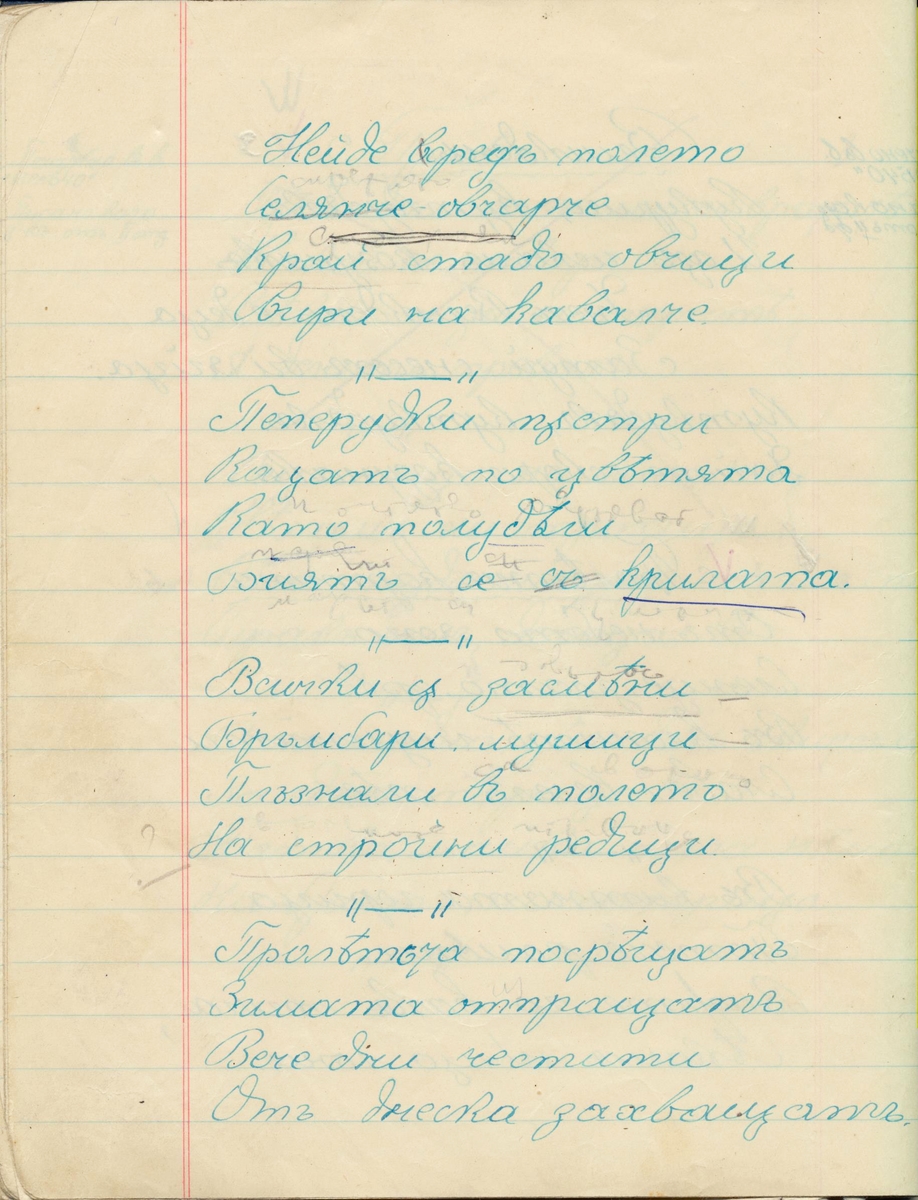 Нейде всредъ полето
Селянче-овчарче
Край стадо овчици
Свири на кавалче.
"—"
Пеперудки пъстри
Кацатъ по цвѣтята
Като полудѣли
Биятъ се съ крилата.
"—"
Всички съ засмѣни —
Бръмбари, мушици —
Плъзнали въ полето
На стройни редици.
"—"
Пролѣтьта посрѣщатъ
Зимата отпращатъ
Вече дни честити
Отъ днеска захващатъ.